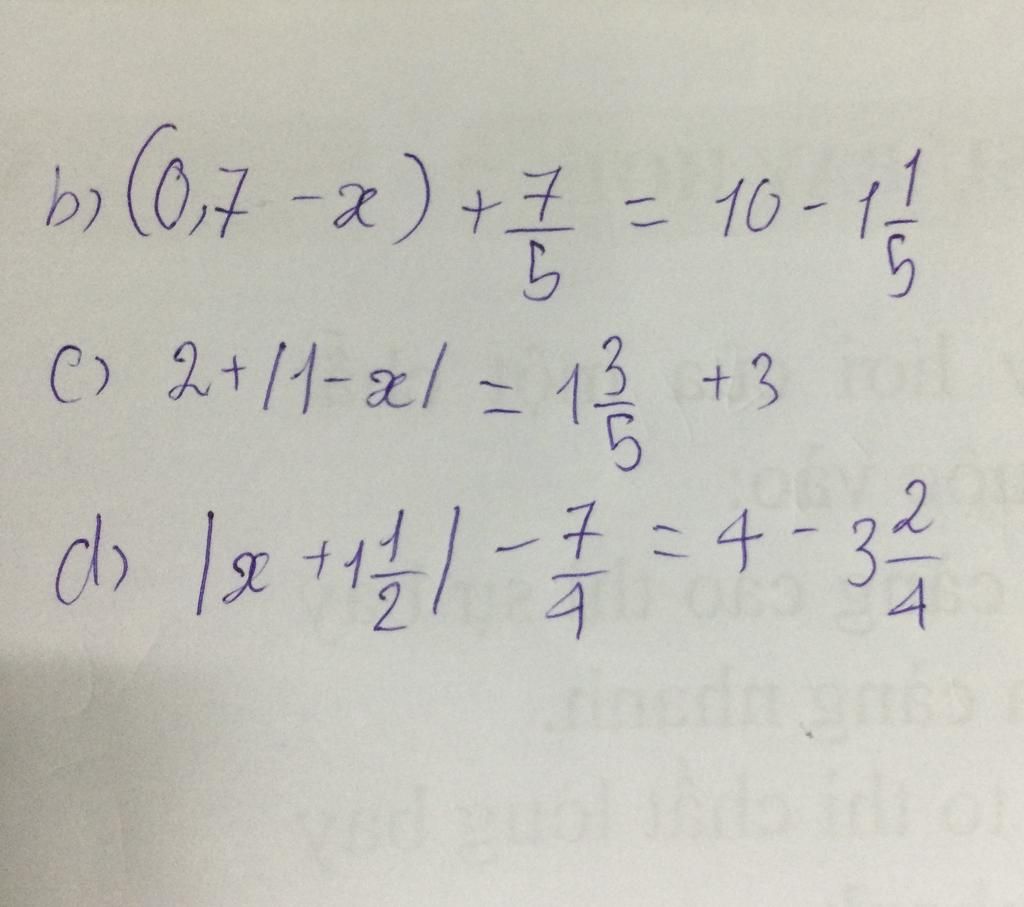 b) (0,7 - x) + 7/5 = 10 - 1 1/5
c) 2 + |1 - x| = 1 3/5 + 3
d) |x + 1 1/2| - 7/4 = 4 - 3 2/4